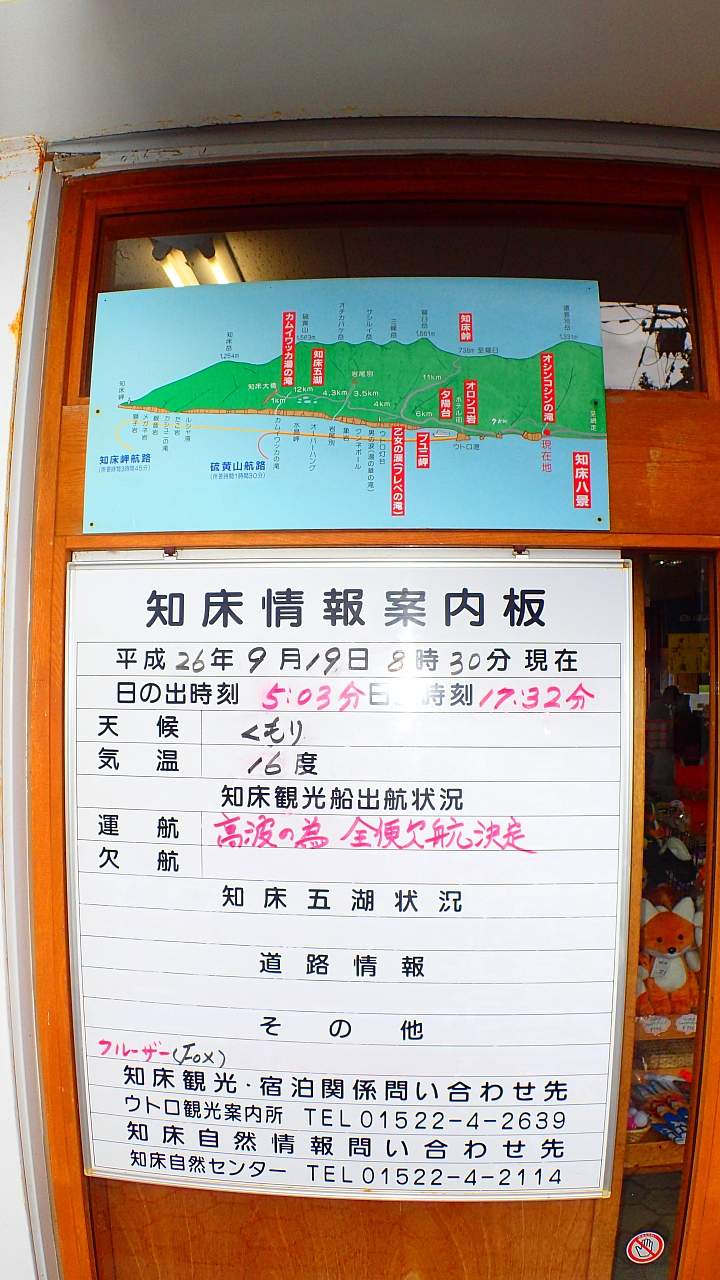 知床岬
知床岳
1,254m
カムイワッカ湯の滝
硫黄山
1,563m
知床五湖
オチカバケ岳
サシルイ岳
三峰岳
羅臼岳
1,661m
知床峠
738m 至羅臼
遠音別岳
1,331m
オシンコシンの滝
知床大橋
1km
12km
4.3km
岩尾別
3.5km
4km
11km
6km
夕陽台
ホテル街
オロンコ岩
7km
至網走
獅子岩
メガネ岩
観音岩
カシュニの滝
たこ岩
ルシャ湾
カムイワッカの滝
水晶岬
オーバーハング
岩尾別
象岩
クンネポール
男の涙(湯の華の滝)
ウトロ灯台
乙女の涙(フレペの滝)
プユニ岬
ウトロ港
現在地
知床八景
知床岬航路
(所要時間3時間45分)
硫黄山航路
(所要時間1時間30分)
知床情報案内板
平成26年9月19日8時30分現在
日の出時刻 5:03分日 時刻17:32分
天候 くもり
気温 16度
知床観光船出航状況
運航 高波の為 全便欠航決定
欠航
知床五湖状況
道路情報
その他
フルーザー(FOX)
知床観光・宿泊関係問い合わせ先
ウトロ観光案内所 TEL01522-4-2639
知床自然情報問い合わせ先
知床自然センター TEL01522-4-2114